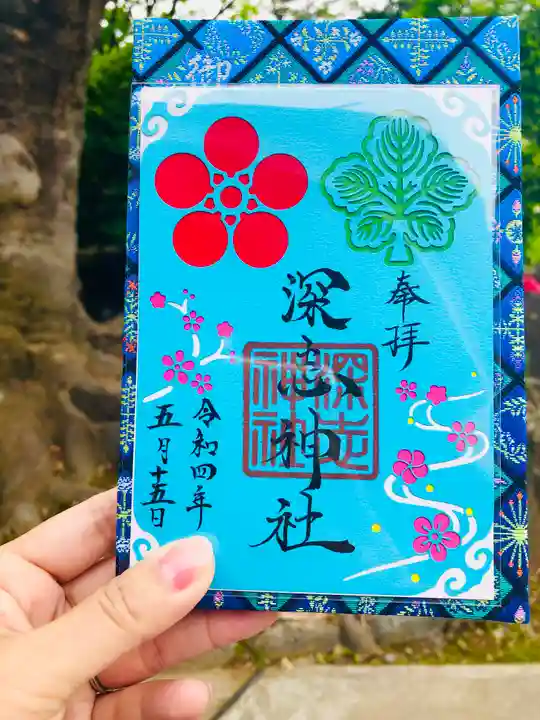 御
奉拝
深志神社
深志神社
令和四年
五月十五日